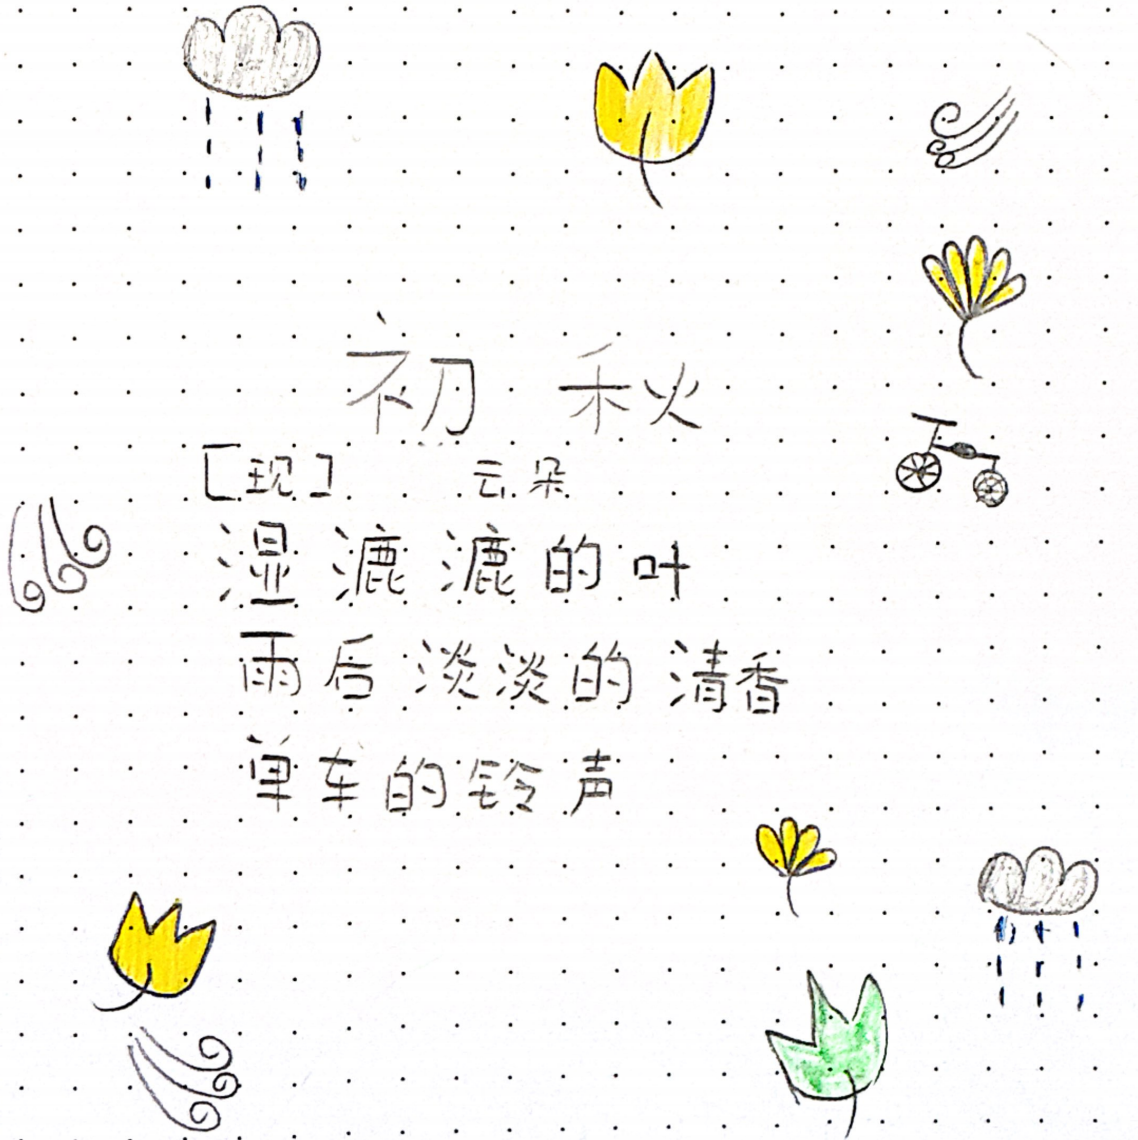 初 秋
[现] 云朵
湿漉漉的叶
雨后淡淡的清香
单车的铃声